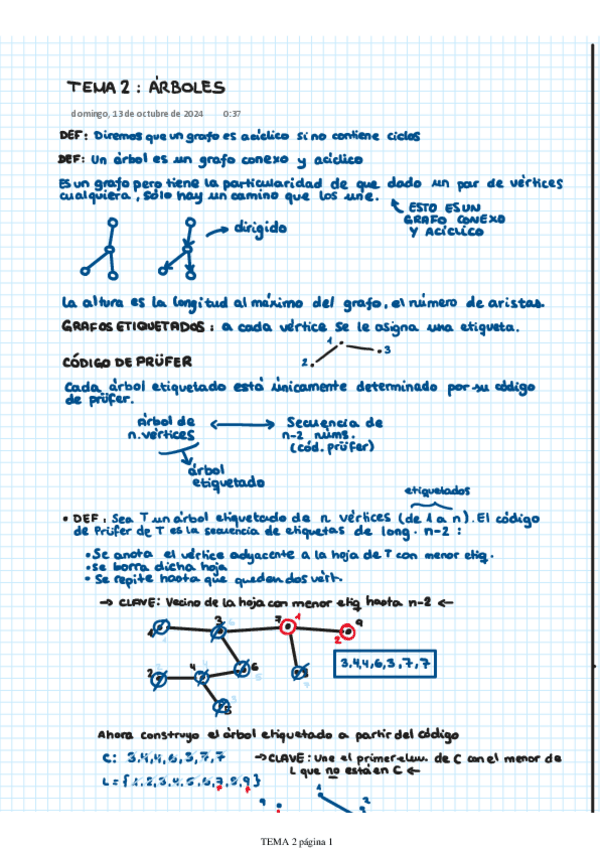 TEMA 2 : ÁRBOLES
domingo, 13 de octubre de 2024 0:37
DEF: Diremos que un grafo es acíclico si no contiene ciclos
DEF: Un árbol es un grafo conexo y acíclico
Es un grafo pero tiene la particularidad de que dado un par de vértices
cualquiera, sólo hay un camino que los une.
ESTO ES UN
GRAFO CONEXO
Y ACÍCLICO
dirigido
La altura es la longitud al máximo del grafo, el número de aristas.
GRAFOS ETIQUETADOS : a cada vértice se le asigna una etiqueta.
1
2
3
CÓDIGO DE PRÜFER
Cada árbol etiquetado está únicamente determinado por su código
de prüfer.
Árbol de
n.vértices
Secuencia de
n-2 núms.
(cód. prüfer)
árbol
etiquetado
etiquetados
• DEF. Sea T un árbol etiquetado de n vértices (de 1 a n). El código
de Prüfer de T es la secuencia de etiquetas de long. n-2 :
• Se anota el vértice adyacente a la hoja de T con menor etiq.
• se borra dicha hoja
• Se repite hasta que queden dos vért.
→ CLAVE: Vecino de la hoja con menor etiq hasta n-2 ←
1 3 7 1 9
2
2 4 6
3,4,4,6,3,7,7
Ahora construyo el árbol etiquetado a partir del código
C: 3,4,4,6,3,7,7
→ CLAVE: Une el primer elem. de C con el menor de
L que no está en C ←
L = {1,2,3,4,5,6,7,8,9}
9
2
TEMA 2 página 1